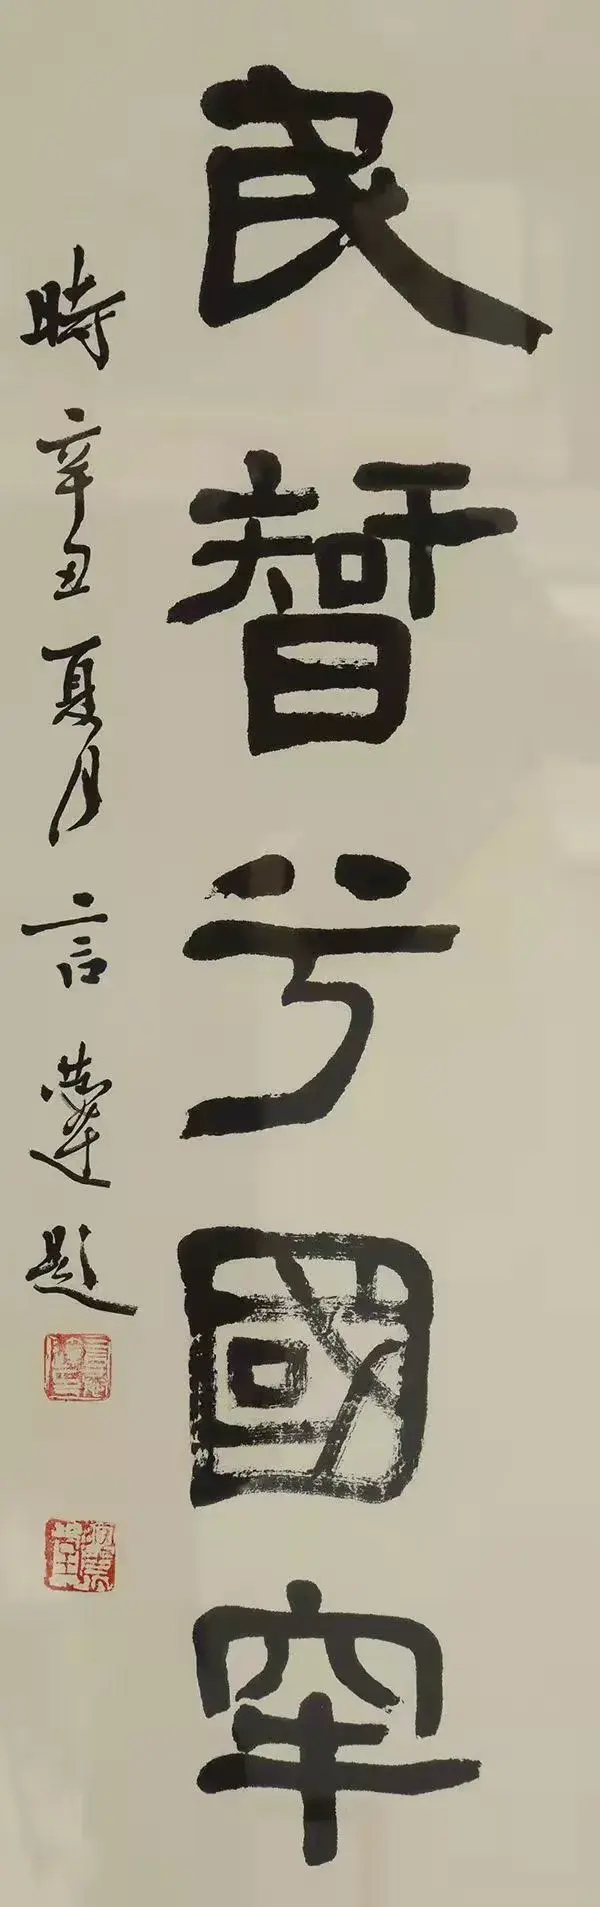 民智兮國牢
時辛丑夏月言恭達題